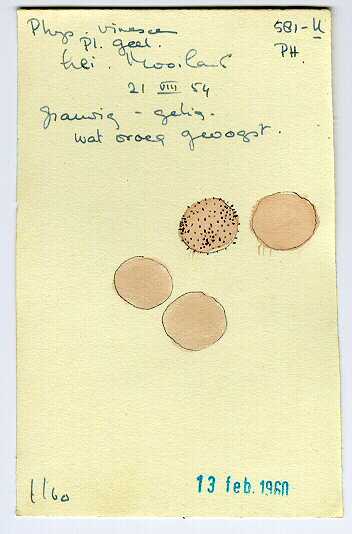 Phys. vinescens
Pl. geel.
581-U
PH.
lei. Mooiland
21 VIII 54
grauwig - gelig.
wat vroeg geoogst.
1/60
13 feb. 1960